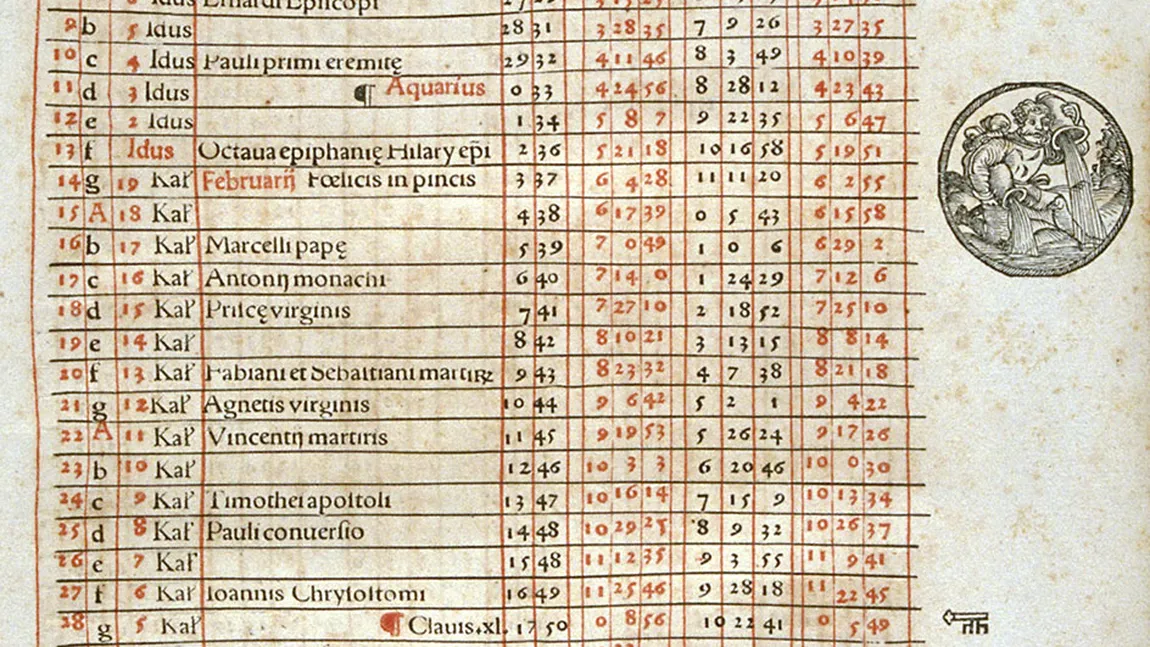 Idus Erhardi Episcopi 27 29 3 15 25
9 b 5 Idus 28 31 3 28 35 7 9 26 3 27 35
10 c 4 Idus Pauli primi eremitę 29 32 4 11 46 8 3 49 4 10 39
11 d 3 Idus ¶ Aquarius 0 33 4 24 56 8 28 12 4 23 43
12 e 2 Idus 1 34 5 8 7 9 22 35 5 6 47
13 f Idus Octaua epiphanię Hilary ep̃i 2 36 5 21 18 10 16 58 5 19 51
14 g 19 Kal' Februarij Fœlicis in pincis 3 37 6 4 28 11 11 20 6 2 55
15 A 18 Kal' 4 38 6 17 39 0 5 43 6 15 58
16 b 17 Kal' Marcelli papę 5 39 7 0 49 1 0 6 6 29 2
17 c 16 Kal' Antonij monachi 6 40 7 14 0 1 24 29 7 12 6
18 d 15 Kal' Priscę virginis 7 41 7 27 10 2 18 52 7 25 10
19 e 14 Kal' 8 42 8 10 21 3 13 15 8 8 14
20 f 13 Kal' Fabiani et Sebastiani martiꝝ 9 43 8 23 32 4 7 38 8 21 18
21 g 12 Kal' Agnetis virginis 10 44 9 6 42 5 2 1 9 4 22
22 A 11 Kal' Vincentij martiris 11 45 9 19 53 5 26 24 9 17 26
23 b 10 Kal' 12 46 10 3 3 6 20 46 10 0 30
24 c 9 Kal' Timothei apostoli 13 47 10 16 14 7 15 9 10 13 34
25 d 8 Kal' Pauli conuersio 14 48 10 29 25 8 9 32 10 26 37
26 e 7 Kal' 15 48 11 12 35 9 3 55 11 9 41
27 f 6 Kal' Ioannis Chrysostomi 16 49 11 25 46 9 28 18 11 22 45
28 g 5 Kal' ¶ Clauis .xl. 17 50 0 8 56 10 22 41 0 5 49